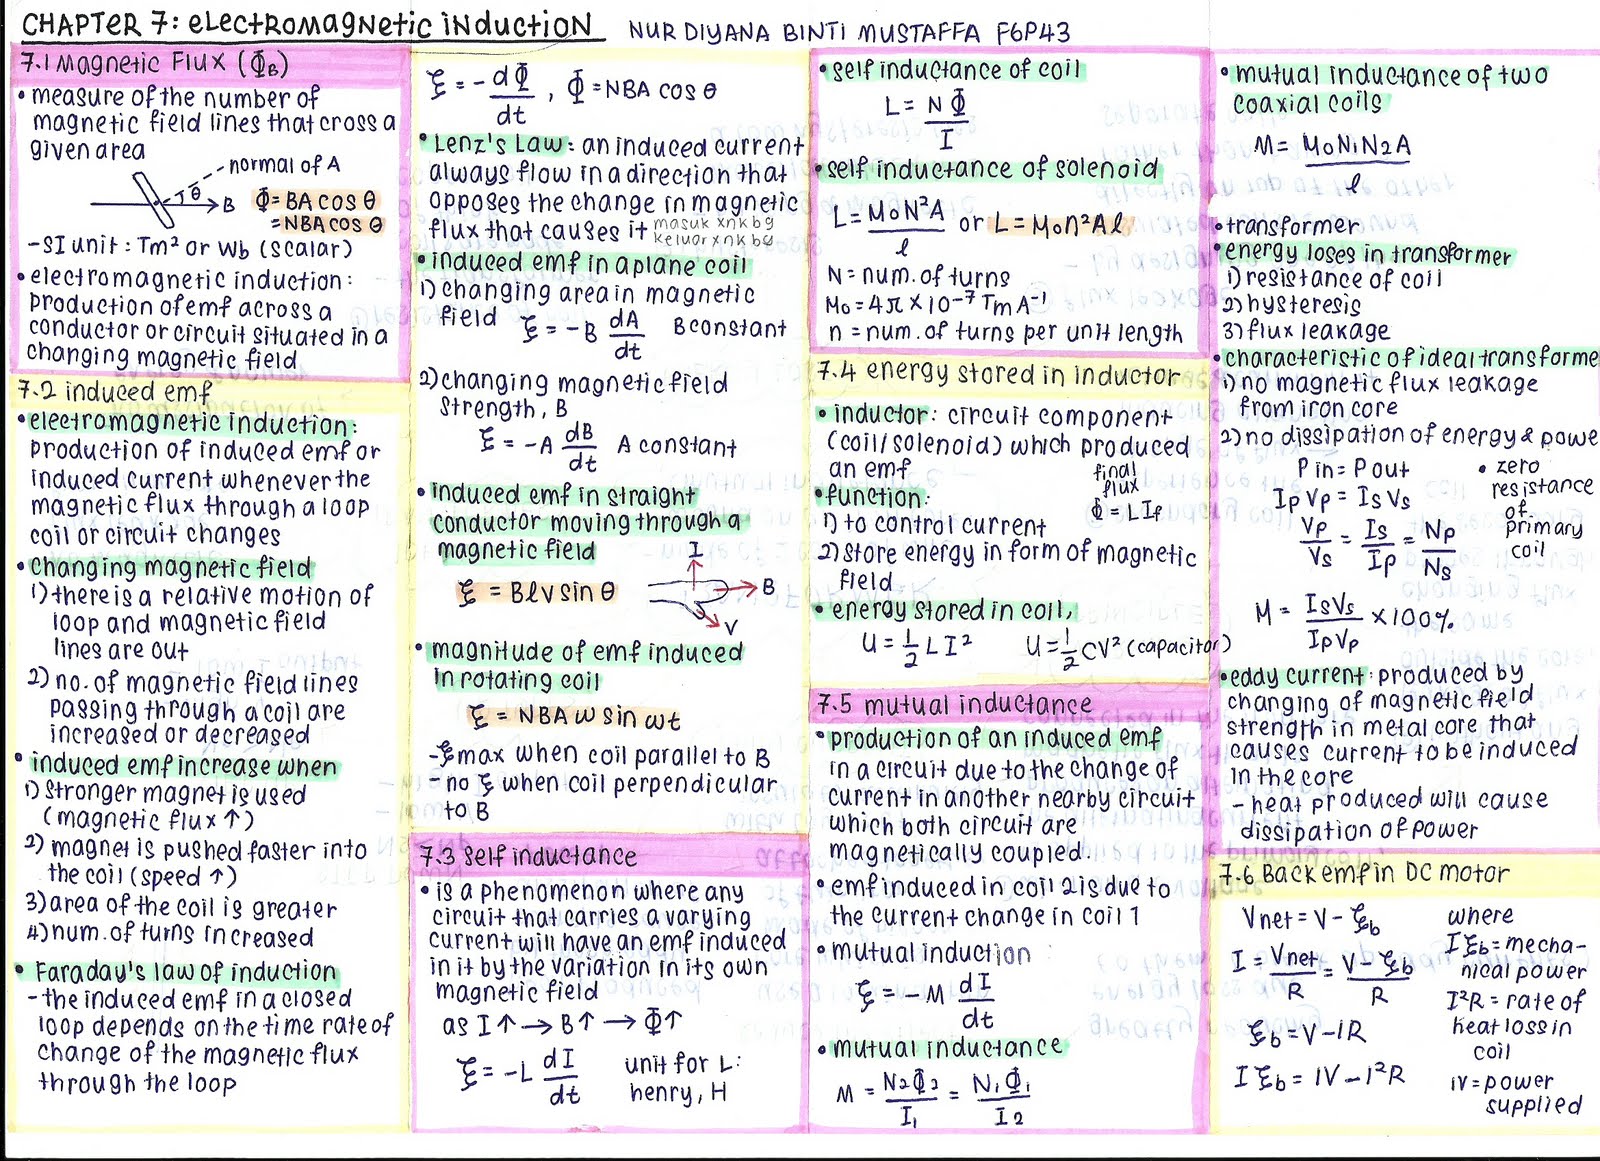 CHAPTER 7: ELECTROMAGNETIC INDUCTION
NUR DIYANA BINTI MUSTAFFA F6P43
7.1 Magnetic Flux (Φ_B)
• measure of the number of
magnetic field lines that cross a
given area
normal of A
θ
B
Φ = BA cos θ
= NBA cos θ
- SI unit : Tm² or Wb (scalar)
• electromagnetic induction:
production of emf across a
conductor or circuit situated in a
changing magnetic field
7.2 induced emf
• electromagnetic induction:
production of induced emf or
induced current whenever the
magnetic flux through a loop
coil or circuit changes
• changing magnetic field
1) there is a relative motion of
loop and magnetic field
lines are out
2) no. of magnetic field lines
passing through a coil are
increased or decreased
• induced emf increase when
1) stronger magnet is used
(magnetic flux ↑)
2) magnet is pushed faster into
the coil (speed ↑)
3) area of the coil is greater
4) num. of turns increased
• Faraday's law of induction
- the induced emf in a closed
loop depends on the time rate of
change of the magnetic flux
through the loop
ξ = - dΦ/dt , Φ = NBA cos θ
• Lenz's Law: an induced current
always flow in a direction that
opposes the change in magnetic
flux that causes it
masuk xnk bg
keluar xnk bg
• induced emf in a plane coil
1) changing area in magnetic
field ξ = -B dA/dt B constant
2) changing magnetic field
strength, B
ξ = -A dB/dt A constant
• induced emf in straight
conductor moving through a
magnetic field
ξ = Blv sin θ
I
B
V
• magnitude of emf induced
in rotating coil
ξ = NBA ω sin ωt
- ξmax when coil parallel to B
no ξ when coil perpendicular
to B
7.3 self inductance
• is a phenomenon where any
circuit that carries a varying
current will have an emf induced
in it by the variation in its own
magnetic field
as I↑ → B↑ → Φ↑
ξ = -L dI/dt
unit for L:
henry, H
• self inductance of coil
L = NΦ/I
• self inductance of solenoid
L = MoN²A/l or L = Mon²Al
N = num. of turns
Mo = 4π × 10⁻⁷ TmA⁻¹
n = num. of turns per unit length
7.4 energy stored in inductor
• inductor: circuit component
(coil/solenoid) which produced
an emf
• function:
final
flux
Φ = LIf
1) to control current
2) store energy in form of magnetic
field
• energy stored in coil,
U = ½ LI² U = ½ CV² (capacitor)
7.5 mutual inductance
• production of an induced emf
in a circuit due to the change of
current in another nearby circuit
which both circuit are
magnetically coupled.
• emf induced in coil 2 is due to
the current change in coil 1
• mutual induction
ξ = -M dI/dt
• mutual inductance
M = N₂Φ₂/I₁ = N₁Φ₁/I₂
• mutual inductance of two
coaxial coils
M = MoN₁N₂A/l
• transformer
• energy loses in transformer
1) resistance of coil
2) hysteresis
3) flux leakage
• characteristic of ideal transforme
1) no magnetic flux leakage
from iron core
2) no dissipation of energy & powe
Pin = Pout
IpVp = IsVs
Vp/Vs = Is/Ip = Np/Ns
• zero
resistance
of
primary
coil
M = IsVs/IpVp × 100%
• eddy current: produced by
changing of magnetic field
strength in metal core that
causes current to be induced
in the core
- heat produced will cause
dissipation of power
7.6 Back emf in DC motor
Vnet = V - ξb
I = Vnet/R = V - ξb/R
ξb = V - IR
Iξb = IV - I²R
where
Iξb = mecha-
nical power
I²R = rate of
heat loss in
coil
IV = power
supplied